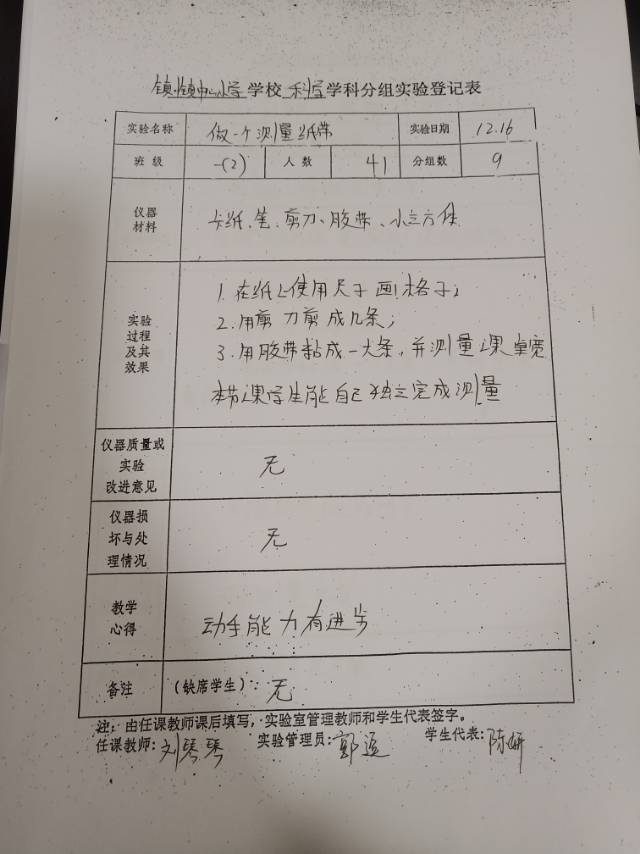 镇川镇中心小学学校科学学科分组实验登记表
实验名称 做一个测量纸带 实验日期 12.16
班级 一(2) 人数 41 分组数 9
仪器
材料
卡纸、笔、剪刀、胶带、小立方体
实验
过程
及其
效果
1.在纸上使用尺子画格子;
2.用剪刀剪成几条;
3.用胶带粘成一大条,并测量课桌宽
本节课学生能自己独立完成测量
仪器质量或
实验
改进意见
无
仪器损
坏与处
理情况
无
教学
心得
动手能力有进步
备注 (缺席学生):无
注:由任课教师课后填写,实验室管理教师和学生代表签字。
任课教师:刘琴琴 实验管理员:郭 学生代表:陈妍